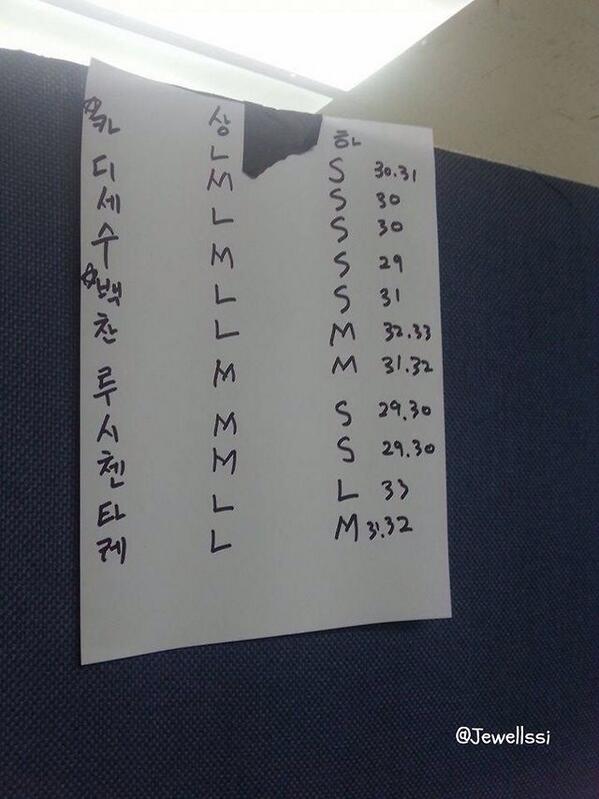 상 하
☆카 L S 30.31
디 M S 30
세 L S 30
수 M S 29
☆백 L S 31
찬 L M 32.33
루 M M 31.32
시 M S 29.30
첸 M S 29.30
타 L L 33
L M 31.32
@Jewellssi